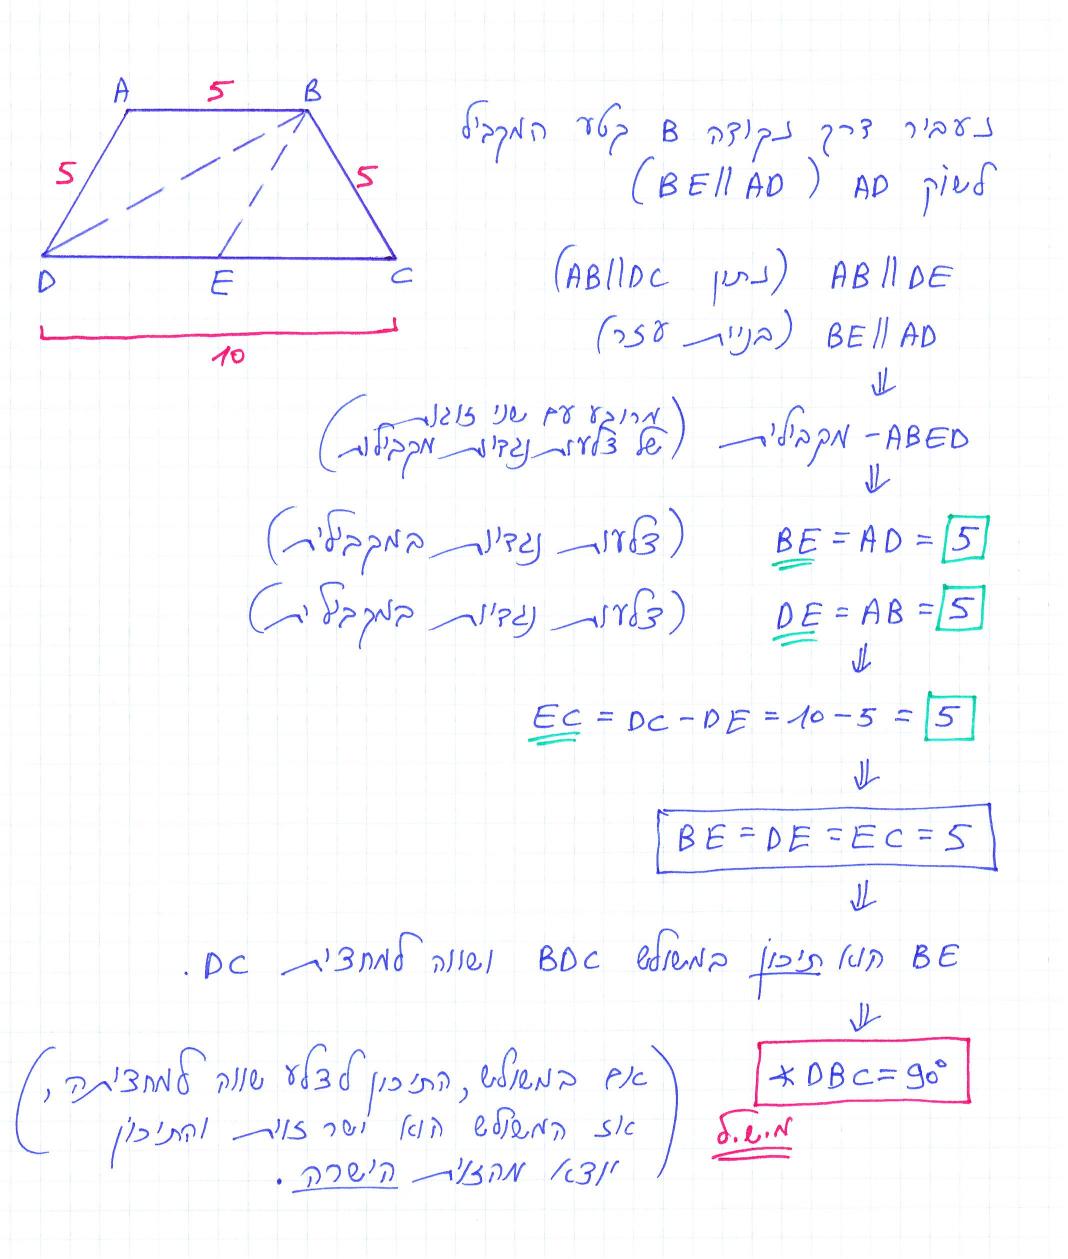 A 5 B
5 5
D E C
10
נעביר דרך נקודה B קטע המקביל
לשוק AD (BE||AD)
AB||DE (נתון AB||DC)
BE||AD (בניית עזר)
⇓
ABED - מקבילית (מרובע עם שני זוגות
של צלעות נגדיות מקבילות)
⇓
BE = AD = 5 (צלעות נגדיות במקבילית)
DE = AB = 5 (צלעות נגדיות במקבילית)
⇓
EC = DC - DE = 10 - 5 = 5
⇓
BE = DE = EC = 5
⇓
BE הוא תיכון במשולש BDC ושווה למחצית DC.
⇓
∢DBC = 90°
(אם במשולש, התיכון לצלע שווה למחציתה,
אז המשולש הוא ישר זוית והתיכון
יוצא מהזוית הישרה.)
מ.ש.ל